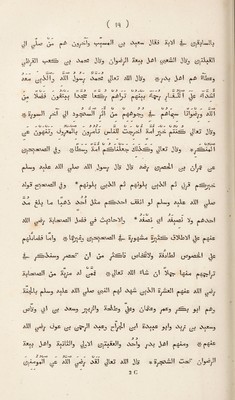 ( ١٩ )
بالسابقين فى الاية فقال سعيد بن المسيب وآخرون هم من صلى الى
القبلتين وقال الشعبى اهل بيعة الرضوان وقال محمد بن كعب القرظى
وعطآء هم اهل بدر * وقال الله تعالى مُحَمَّدٌ رَسُولُ اللَّهِ وَالَّذِينَ مَعَهُ
أَشِدَّاءُ عَلَى الْكُفَّارِ رُحَمَاءُ بَيْنَهُمْ تَرَاهُمْ رُكَّعًا سُجَّدًا يَبْتَغُونَ فَضْلًا مِنَ
اللَّهِ وَرِضْوَانًا سِيمَاهُمْ فِى وُجُوهِهِمْ مِنْ أَثَرِ السُّجُودِ الى آخر السورة *
وقال تعالى كُنْتُمْ خَيْرَ أُمَّةٍ أُخْرِجَتْ لِلنَّاسِ تَأْمُرُونَ بِالْمَعْرُوفِ وَتَنْهَوْنَ عَنِ
الْمُنْكَرِ * وقال تعالى وَكَذَلِكَ جَعَلْنَاكُمْ أُمَّةً وَسَطًا * وفى الصحيحين
عن عمران بن الحصين رضه قال قال رسول الله صلى الله عليه وسلم
خيركم قرنى ثم الذين يلونهم ثم الذين يلونهم * وفى الصحيحين قوله
صلى الله عليه وسلم لو انفق احدكم مثل أُحُد ذهبًا ما بلغ مُدَّ
احدهم ولا نَصِيفَه اى نِصْفَه * والاحاديث فى فضل الصحابة رضى الله
عنهم على الاطلاق كثيرة مشهورة فى الصحيحين وغيرهما * واما فضائلهم
على الخصوص لطائفة ولاشخاص فاكثر من ان تحصر وسنذكر فى
تراجمهم منها جملًا ان شآء الله تعالى * فممّن له مزيّة من الصحابة
رضى الله عنهم العشرة الذين شهد لهم النبى صلى الله عليه وسلم بالجنّة
وهم ابو بكر وعمر وعثمان وعلى وطلحة والزبير وسعد بن ابى وقاص
وسعيد بن زيد وابو عبيدة ابن الجراح وعبد الرحمن بن عوف رضى الله
عنهم * ومنهم اهل بدر وأُحُد والعقبتين الاولى والثانية واهل بيعة
الرضوان تحت الشجرة * قال الله تعالى لَقَدْ رَضِىَ اللَّهُ عَنِ الْمُؤْمِنِينَ
2 C